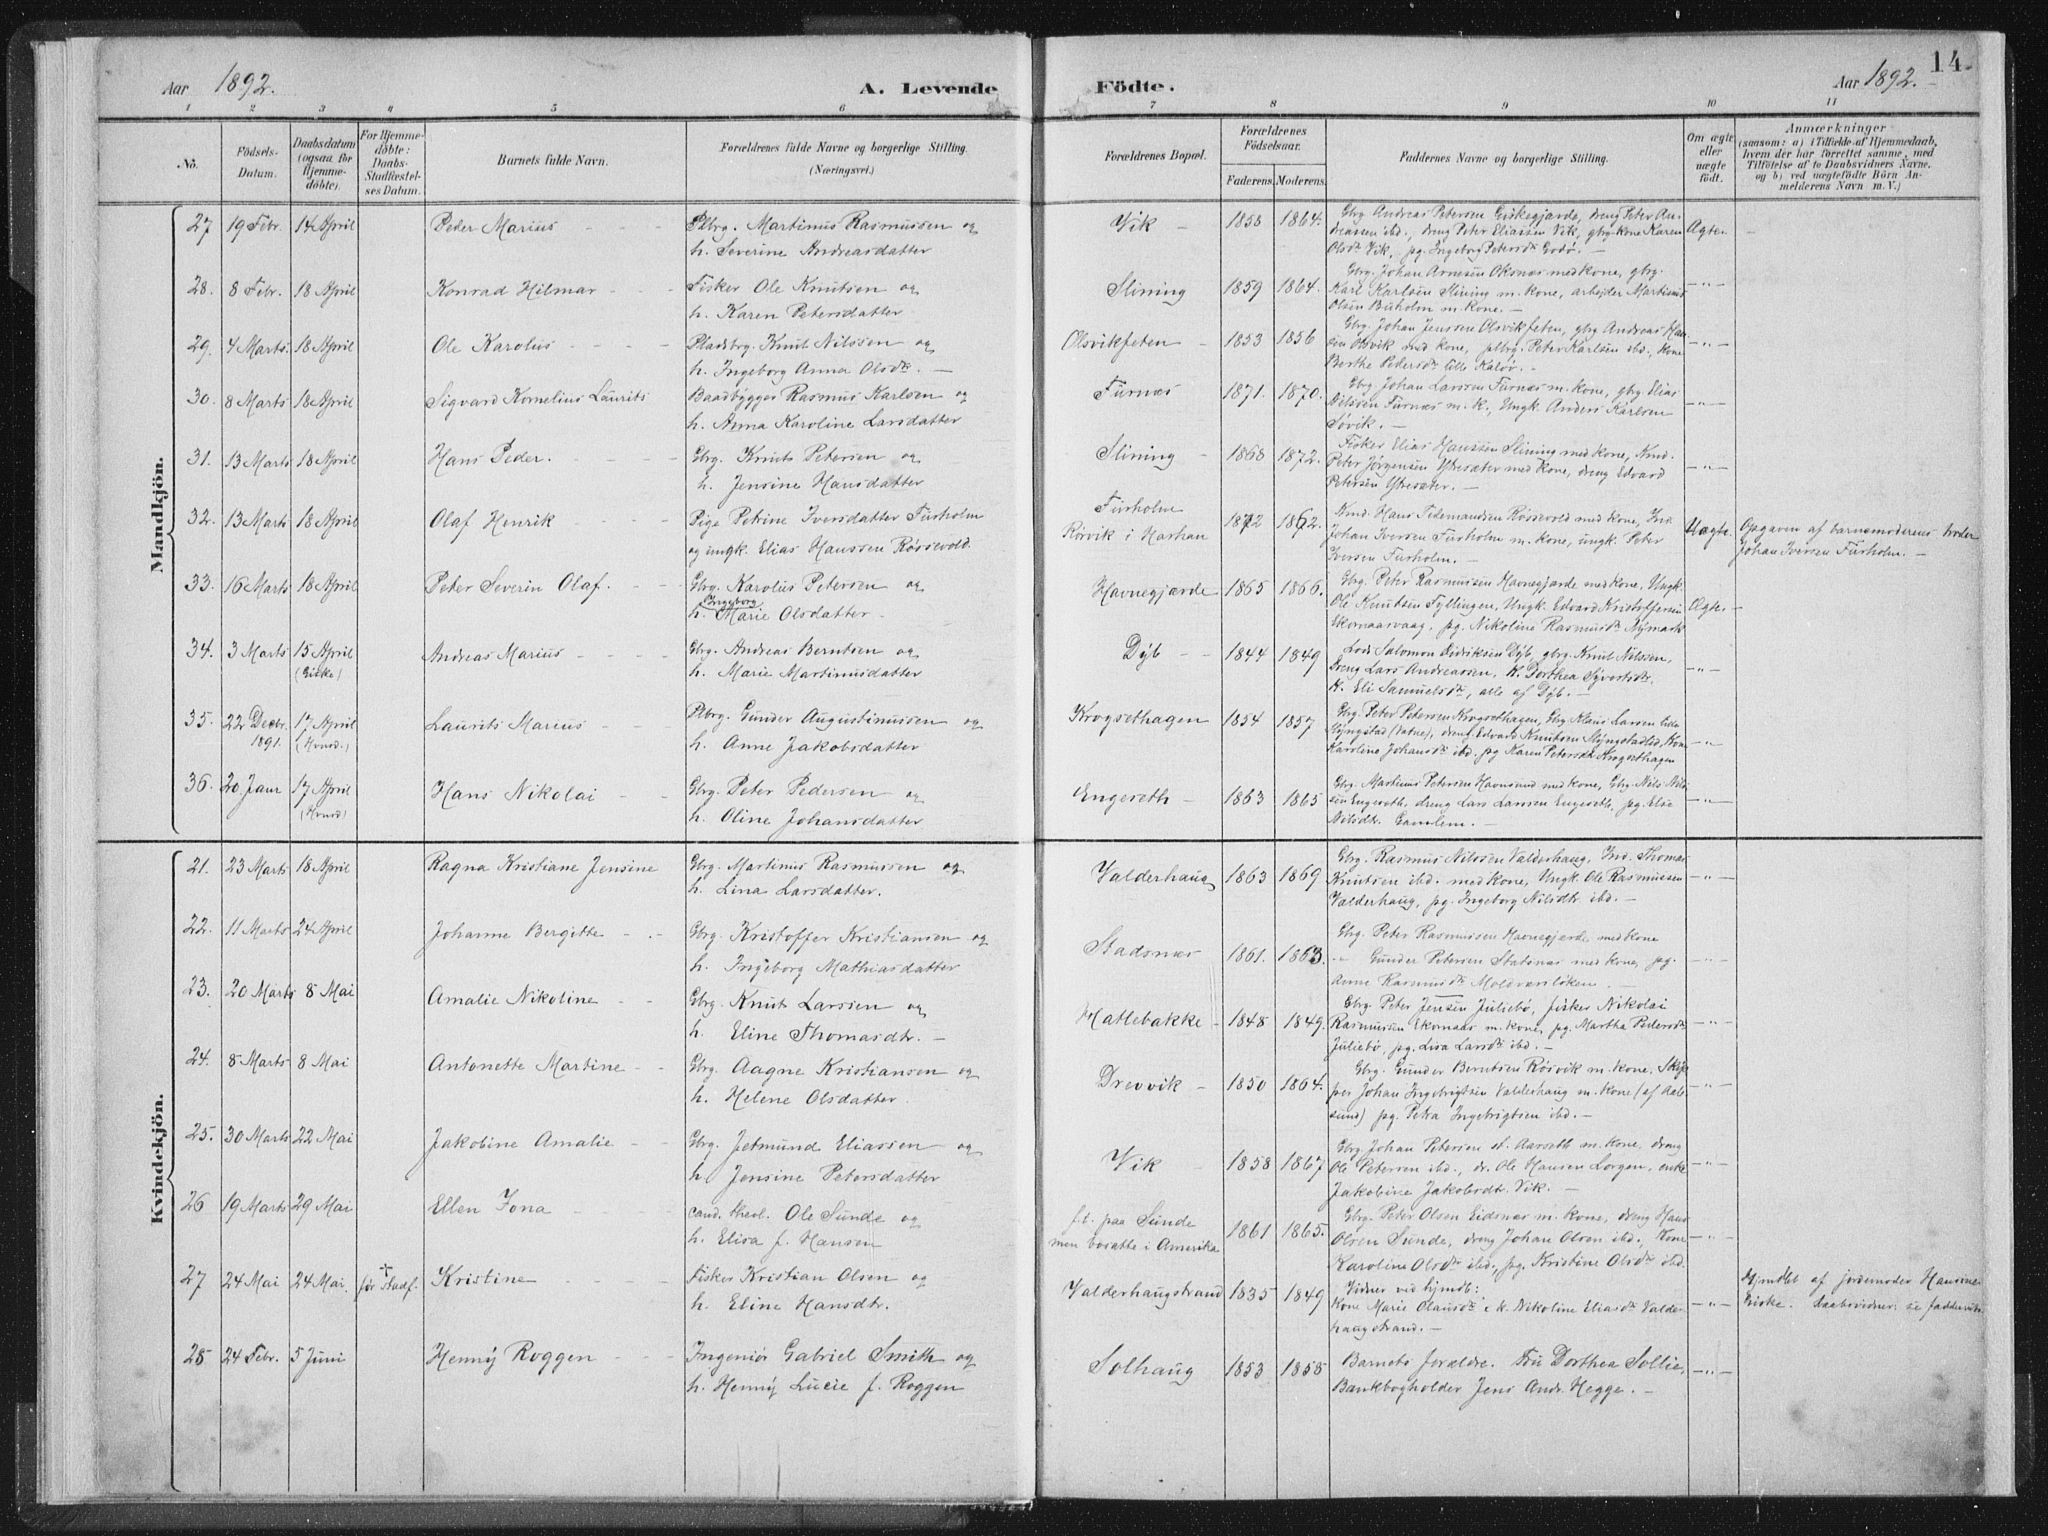 Aar 1892.
A. Levende
Födte.
Aar 1892.
14.
1 2 3 4 5 6 7 8 9 10 11
No.
Födsels-Datum.
Daabsdatum (ogsaa for Hjemmedöbte).
For Hjemmedöbte: Daabs-Stadfæstelses Datum.
Barnets fulde Navn.
Forældrenes fulde Navne og borgerlige Stilling.
(Næringsvei.)
Forældrenes Bopæl.
Forældrenes Födselsaar.
Faderens. Moderens.
Faddernes Navne og borgerlige Stilling.
Om ægte eller uægte födt.
Anmærkninger
(saasom: a) i Tilfælde af Hjemmedaab, hvem der har forrettet samme, med Tilföielse af to Daabsvidners Navne, og b) ved uægtefödte Börn Anmelderens Navn m. V.)
Mandkjön.
27 19 Febr. 14 April Peder Marius Plbrg. Martinus Rasmussen og
h. Severine Andreasdatter
Vik 1858 1864. Gbrg Andreas Petersen Giskegjerde, dreng Peter An-
dreassen ibd., dreng Peter Eliassen Vik, gbrg kone Karen
Olsdr Vik, pg. Ingeborg Petersdr Godø. Ægte
28. 8 Febr. 18 April Konrad Hilmar Fisker Ole Knutsen og
h. Karen Petersdatter
Slining 1859 1864. Gbrg. Johan Arnesen Oksnes med kone, gbrg.
Karl Karlsen Slining m. kone, arbejder Martinus
Olsen Buholm m. kone. —"—
29. 4 Marts 18 April Ole Karolus Pladsbrg. Knut Nilssen og
h. Ingeborg Anna Olsdr.
Olsvikfeten 1853 1856 Gbrg. Johan Jenssen Olsvikfeten, gbrg Andreas Han-
sen Olsvik med kone, plbrg. Peter Karlsen ibd., kone
Berthe Pedersdr Lille Kaløv. —"—
30. 8 Marts 18 April Sigvard Kornelius Laurits Baadbygger Rasmus Karlsen og
h. Anna Karoline Larsdatter
Furnæs 1871. 1870. Gbrg. Johan Larssen Furnæs m. kone, gbrg Elias
Nilssen Furnæs m. k., Ungk. Anders Karlsen
Søvik. —"—
31. 13 Marts 18 April Hans Peder. Gbrg. Knut Petersen og
h. Jensine Hansdatter
Slining 1868 1872. Fisker Elias Hanssen Slining med kone, Kmd.
Peter Jørgensen Ytresæter med kone, dreng Edvard
Petersen Ytresæter. —"—
32. 13 Marts 18 April Olaf Henrik Pige Petrine Iversdatter Furholm
og ungk. Elias Hanssen Røssevold.
Furholm
Rörvik i Harhan 1872 1862. Kmd. Hans Tidemandsen Røssevold med kone, Ind.
Johan Iversen Furholm m. kone, ungk. Peter
Iversen Furholm. Uægte. Opgaven af barnemoderens broder
Johan Iversen Furholm.
33. 16 Marts 18 April Peter Severin Olaf. Gbrg. Karolus Petersen og
h. Ingeborg Marie Olsdatter
Havnegjærde 1865 1866. Gbrg. Peter Rasmussen Havnegjærde med kone, Ungk.
Ole Knutsen Fyllingen, Ungk. Edvard Kristoffersen
Ekornaasvaag, pg. Nikoline Rasmusdr Nymark Ægte
34. 3 Marts 15 April (Giske) Andreas Marius Gbrg. Andreas Berntsen og
h. Marie Martinusdatter
Dyb 1844 1849 Lods Salomon Didriksen Dyb, gbrg. Knut Nilssen,
dreng Lars Andreassen, K. Dorthea Syvertsdr.
K. Eli Samuelsdr, alle af Dyb. —"—
35. 22 Decbr. 1891. 17 April Laurits Marius Plbrg. Gunder Augustinussen og
h. Anne Jakobsdatter
Krogsethagen 1854 1857 Gbrg. Peter Petersen Krogsethagen, Gbrg Klaus Larsen Lille
Slyngstad (Vatne), dreng Edvard Knutsen Slyngstadlid, Kone
Karoline Johansdr ibd., pg Karen Petersdr Krogsethagen —"—
36. 20 Janr 17 April Hans Nikolai Gbrg. Peter Pedersen og
h. Oline Johansdatter
Engeseth 1863 1865 Gbrg. Martinus Petersen Havnsund med kone, Gbrg Nils Nils-
sen Engeseth, dreng Lars Larssen Engeseth, pg. Else
Nilsdtr. Gamlem. —"—
Kvindekjön.
21. 23 Marts 18 April Ragna Kristiane Jensine Gbrg. Martinus Rasmussen og
h. Lina Larsdatter.
Valderhaug 1863 1869 Gbrg. Rasmus Nilssen Valderhaug, Ind. Thomas
Knutsen ibd. med kone, Ungk. Ole Rasmussen
Valderhaug, pg. Ingeborg Nilsdtr. ibd. —"—
22. 11 Marts 24 April Johanne Bergitte Gbrg. Kristoffer Kristiansen og
h. Ingeborg Mathiasdatter
Stadsnæs 1861. 1863. Gbrg. Peter Rasmussen Havnegjærde med kone
" Gunder Petersen Statsnæs med kone, pg.
Anne Rasmusdr Moldværsløken. —"—
23. 20 Marts 8 Mai Amalie Nikoline Gbrg. Knut Larssen og
h. Eline Thomasdtr.
Hatlebakke 1848 1849. Gbrg. Peter Jensen Juliebø, fisker Nikolai
Rasmussen Ekornaas m. kone, pg. Martha Pedersdr
Juliebø, pg. Lisa Larsdr ibd. —"—
24. 8 Marts 8 Mai Antonette Martine Gbrg. Aagne Kristiansen og
h. Helene Olsdatter.
Drevvik 1850 1864. Gbrg. Gunder Berntsen Røsvik m. kone, Skip-
per Johan Ingebrigtsen Valderhaug m. kone (af Aale-
sund) pg. Petra Ingebrigtsen ibd. —"—
25. 30 Marts 22 Mai Jakobine Amalie Gbrg. Jetmund Eliassen og
h. Jensine Petersdatter
Vik 1858 1867 Gbrg Johan Petersen st. Aarseth m. kone, dreng
Ole Petersen ibd., dr. Ole Hansen Lorgen, enke
Jakobine Jakobsdtr. Vik. —"—
26 19 Marts 29 Mai Ellen Jona cand. theol. Ole Sunde og
h. Elisa f. Hansen
f.t. paa Sunde
men bosatte i Amerika 1861 1865. Gbrg. Peter Olsen Eidsnæs m. kone, dreng Hans
Olsen Sunde, dreng Johan Olsen ibd., Kone
Karoline Olsdr ibd., pg. Kristine Olsdr ibd. —"—
27 24 Mai 24 Mai. † før Stadf. Kristine Fisker Kristian Olsen og
h. Eline Hansdtr.
Valderhaugstrand 1835 1849 Vidner ved hjmdb:
Kone Marie Olausdr & k. Nikoline Eliasdr Valder-
haugstrand. —"— Hjmdbt af jordemoder Hansine
Giske. Daabsvidner: se fadderrub.
28 24 Febr. 5 Juni Henny Roggen Ingeniør Gabriel Smith og
h. Henny Lucie f. Roggen
Solhaug 1853 1858 Barnets forældre. Fru Dorthea Sollie,
Bankbogholder Jens Andr. Hegge. —"—